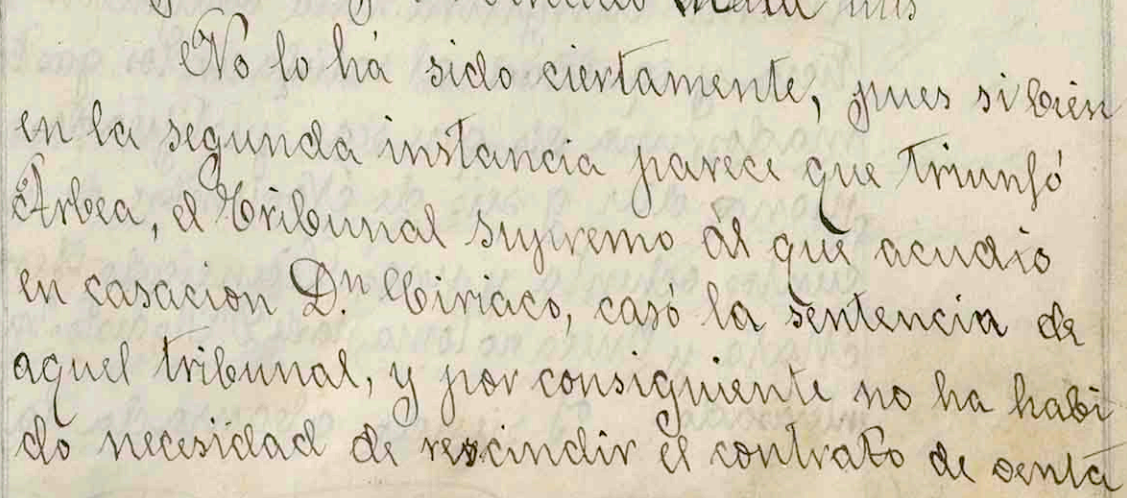 No lo há sido ciertamente, pues si bien
en la segunda instancia parece que triunfó
Arbea, el Tribunal supremo al que acudio
en casacion D.n Ciriaco, casó la sentencia de
aquel tribunal, y por consiguiente no ha habi
do necesidad de rescindir el contrato de venta